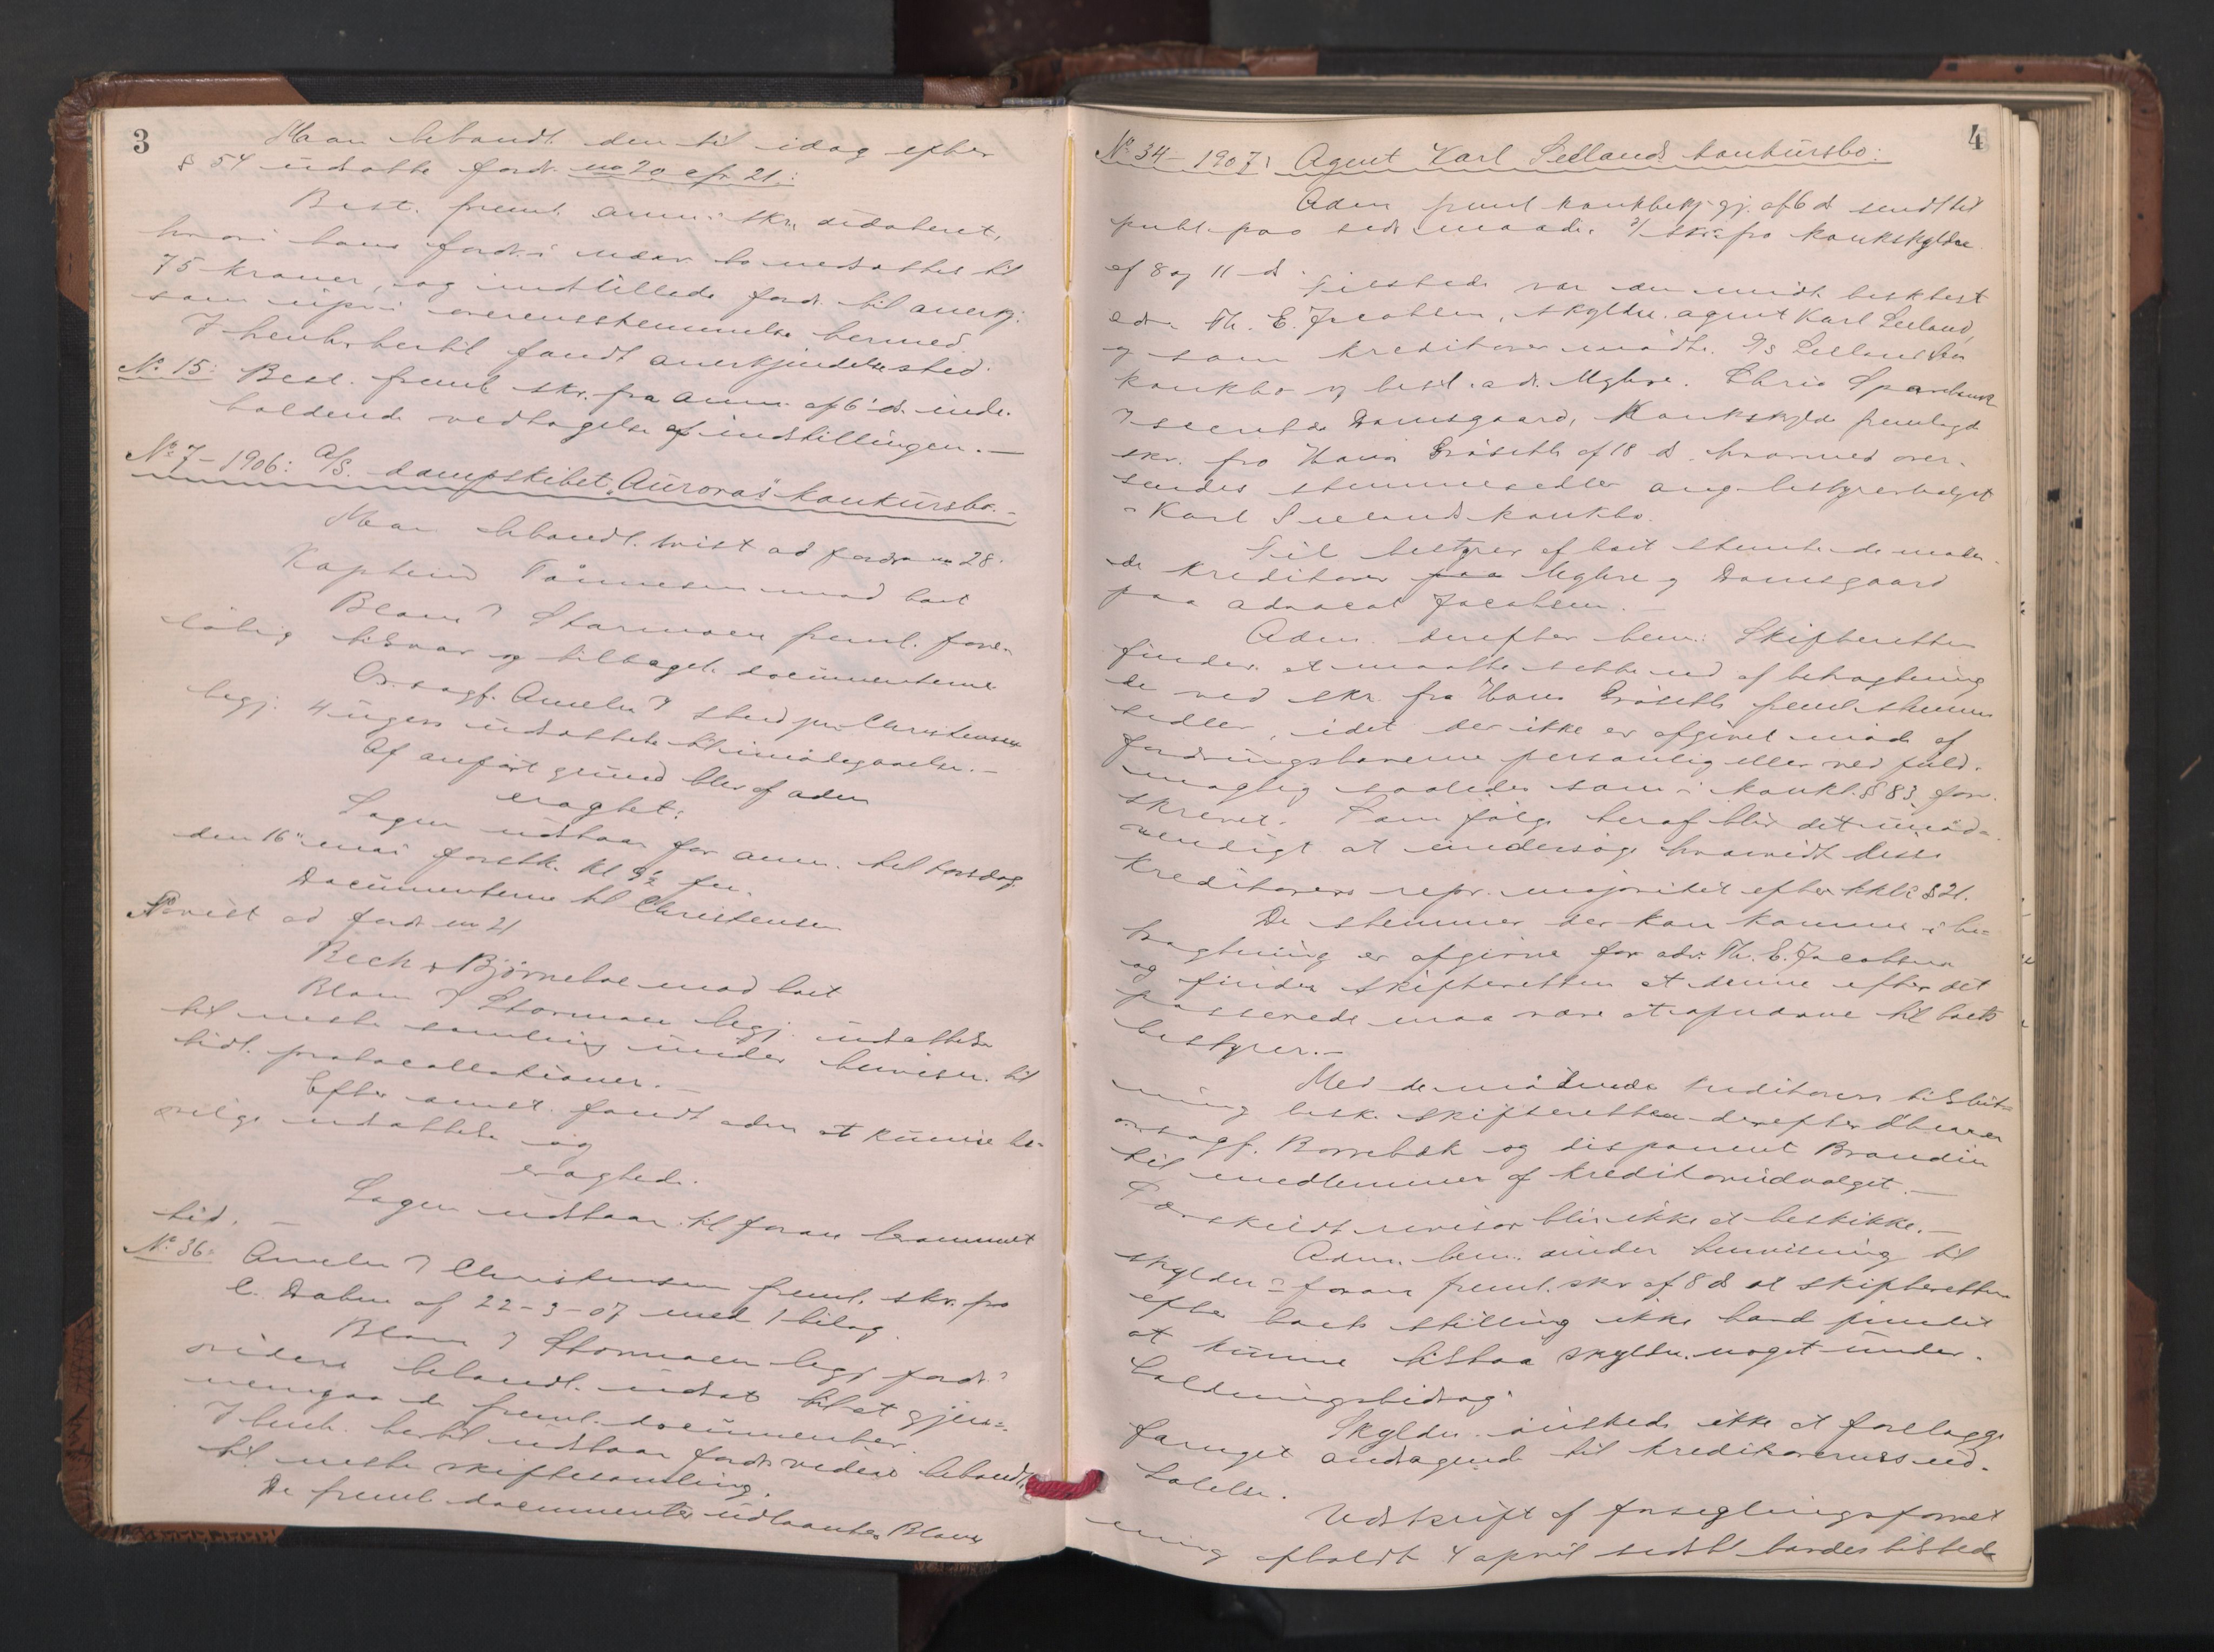 3
Man behandl. den til idag efter
§ 54 udsatte fordr. no 20 cfr. 21:
Best. freml. anm: skr. udateret,
hvori hans fordr. i nærv. bo nedsattes til
75 kroner, og indstillede fordr. til anerkj.
som upri. i overensstemmelse hermed.
I henh. hertil fandt anerkjendelse sted.
No 15: Best. freml. skr. fra anm. af 6' ds. inde-
holdende vedtagelse af indstillingen. —
No 7 - 1906: A/S. dampskibet "Auroras" konkursbo. -
Man behandl. tvist ad fordr. no 28.
Kaptein Tønnesen mod boet
Blom ? Stormoen freml. fore-
løbig tilsvar og tilbagel. documenterne
Or. sagf. Ameln ? sted ved Christensen
begj. 4 ugers udsættelse til imødegaaelse. —
Af anført grund blev af adm.
eragtet:
Sagen udstaar for anm. til torsdag
den 16de mai førstk. kl 9½ fm.
Documenterne til Christensen
Tvist ad fordr. no 21
Rech & Bjørneboe mod boet
Blom ? Stormoen begj. udsættelse
til neste samling under henvisn. til
tidl. protocollationer. —
Efter omst. fandt adm. at kunne be-
vilge udsættelse og
eragtede.
Sagen udstaar til foran berammet
tid. —
No 36: Ameln ? Christensen freml. skr. fra
C. Dahm af 22-3-07 med 1 bilag.
Blom ? Stormoen begj. fordr.s
videre behandl. udsat til at gjen-
nemgaa de freml. documenter.
I henh. hertil udstaar fordr.s videre behandl.
til neste skiftesamling.
De freml. documenter udlaantes Blom
4
No 34 - 1907: Agent Karl Seelands konkursbo:
Adm. freml. konkbekjgj. af 6 ds. sendt til
publ. paa sedv. maade. 2/ skr. fra konkskyldn.
af 8 og 11 ds.
Tilstede var den midl. besk. best.
adv. Th. E. Jacobsen, skyldn. agent Karl Seeland,
og som kreditorer mødte: A/S Seeland
konkbo og best. adv. Myhre. Chria Sparebank
? secretær Damsgaard, Konkskyld. fremlagde
skr. fra Hans Grøseth af 18 ds. hvormed over-
sendes stemmesedler ang. bestyrervalget
i Karl Seelands konkbo.
Til bestyrer af boet stemte de møden-
de kreditorer Myhre og Damsgaard
paa advocat Jacobsen. —
Adm. derefter bem: Skifteretten
finder at maatte sætte ud af betragtning
de ved skr. fra Hans Grøseth freml. stemme-
sedler, idet der ikke er afgivet møde af
fordringshaverne personlig eller ved fuld-
mægtig saaledes som i konkl. § 83 fore-
skrevet. Som følge heraf blir det unød-
vendigt at undersøge hvorvidt disse
kreditorer repr. majoritet efter kkl.s § 21.
De stemmer der kan komme i be-
tragtning er afgivne for adv. Th. E. Jacobsen
og finder skifteretten at denne efter det
passerede maa være at opnævne til boets
bestyrer. —
Med de mødende kreditorers tilslut-
ning besk. skifteretten derefter
orsagf. Borrebæk og disponent Brandin
til medlemmer af kreditorudvalget. —
Særskildt revisor blir ikke at beskikke. —
Adm. bem. under henvisning til
skyldn.s foran freml. skr. af 8 ds. at skifteretten
efter boets stilling ikke havde fundet
at kunne tilstaa skyldn. noget under-
holdningsbidrag.
Skyldn. ønskede ikke at forelægge
fornyet andragende til kreditorernes ud-
talelse.
Udskrift af forseglingsforret
ning afholdt 4 april sidstl. havdes tilstede